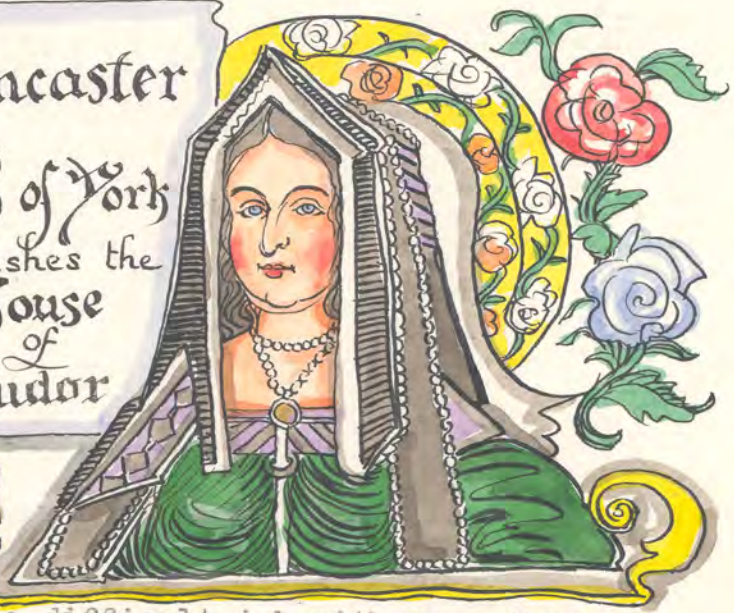 ncaster
of York
shes the
ouse
of
udor